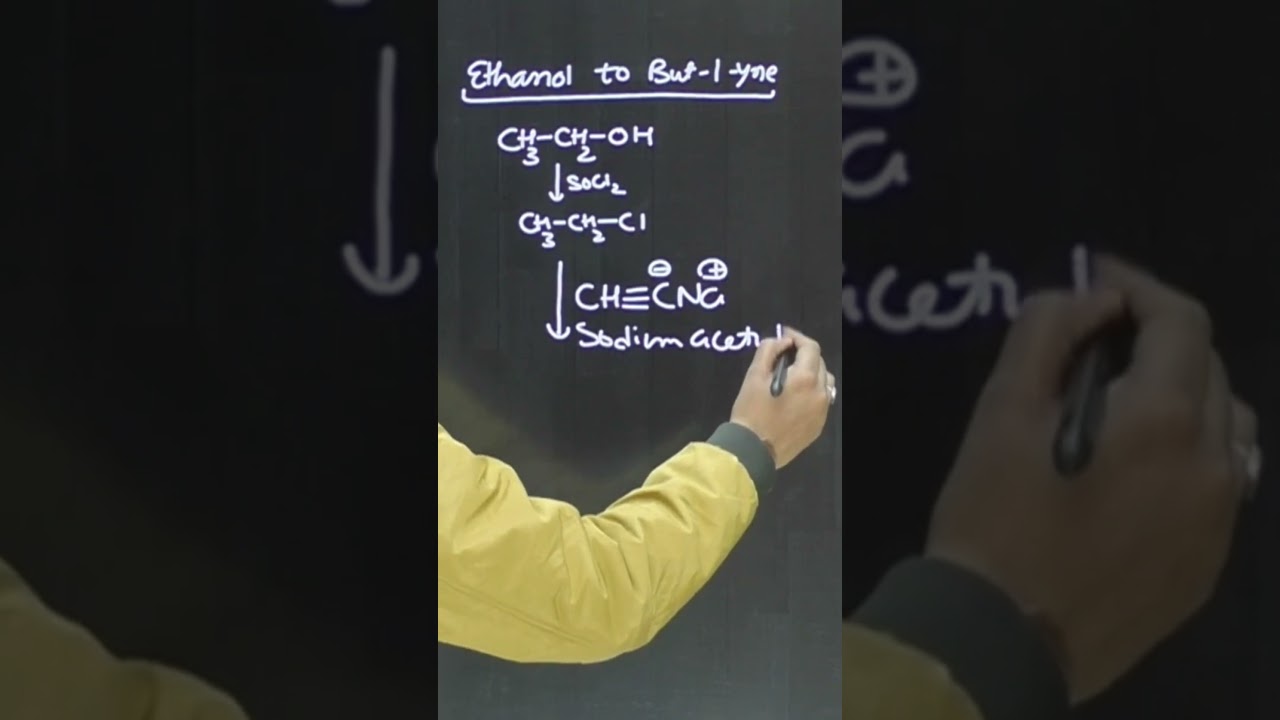 Ethanol to But-1-yne
CH3-CH2-OH
SOCl2
CH3-CH2-Cl
⊖ ⊕
CH≡CNa
Sodium